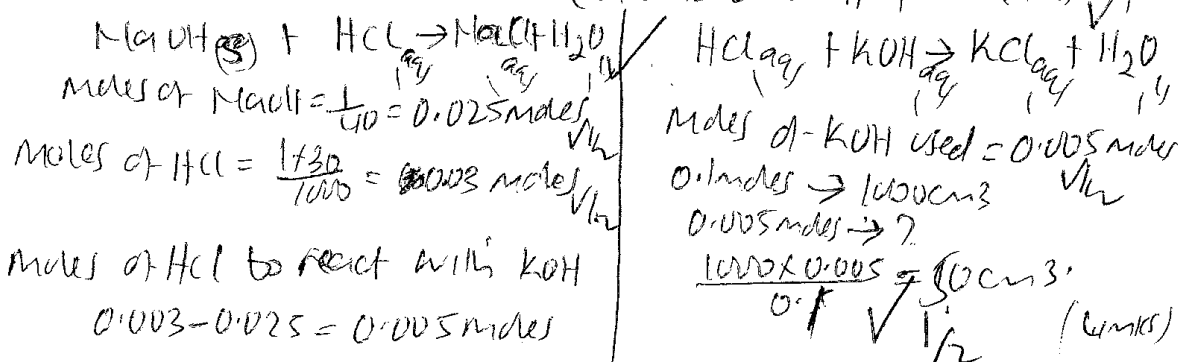 NaOH(s) + HCl(aq) → NaCl(aq) + H2O(l) ✓
Moles of NaOH = 1/40 = 0.025 moles ✓1/2
Moles of HCl = 1×30/1000 = 0.03 moles ✓1/2
Moles of HCl to react with KOH
0.003-0.025 = 0.005 moles
HCl(aq) + KOH(aq) → KCl(aq) + H2O(l)
Moles of KOH used = 0.005 moles ✓1/2
0.1moles → 1000cm3
0.005moles → ?
1000×0.005/0.1 = 50cm3. ✓1/2
(4mks)